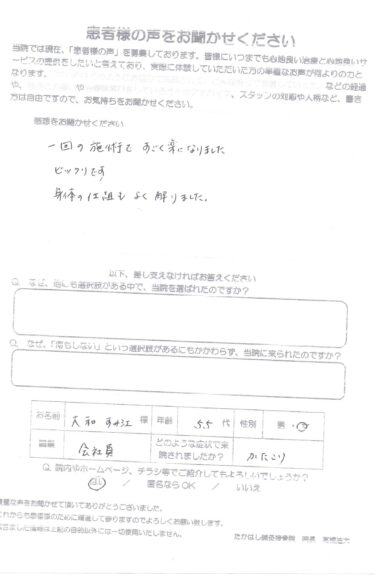 患者様の声をお聞かせください
当院では現在、「患者様の声」を募集しております。皆様にいつまでも心地良い治療と心地良いサ
ービスの提供をしたいと考えており、実際に体験していただいた方の率直なお声が何よりの力と
なります。
などの経過
や、スタッフの対応や人柄など、書き
方は自由ですので、お気持ちをお聞かせください。
感想をお聞かせください
一回の施術で すごく楽になりました
ビックリです
身体の仕組も よく解りました。
以下、差し支えなければお答えください
Q. なぜ、他にも選択肢がある中で、当院を選ばれたのですか?
Q. なぜ、「何もしない」という選択肢があるにもかかわらず、当院に来られたのですか?
お名前 大和 様 年齢 55 代 性別 男・女
職業 会社員 どのような症状で来院されましたか? かたこり
Q. 院内やホームページ、チラシ等でご紹介してもよろしいでしょうか?
はい / 匿名ならOK / いいえ
貴重な声をお聞かせて頂いてありがとうございました。
これからも患者様のために精進して参りますのでよろしくお願い致します。
情報は上記の目的以外には一切使用いたしません。
たかはし鍼灸接骨院 院長